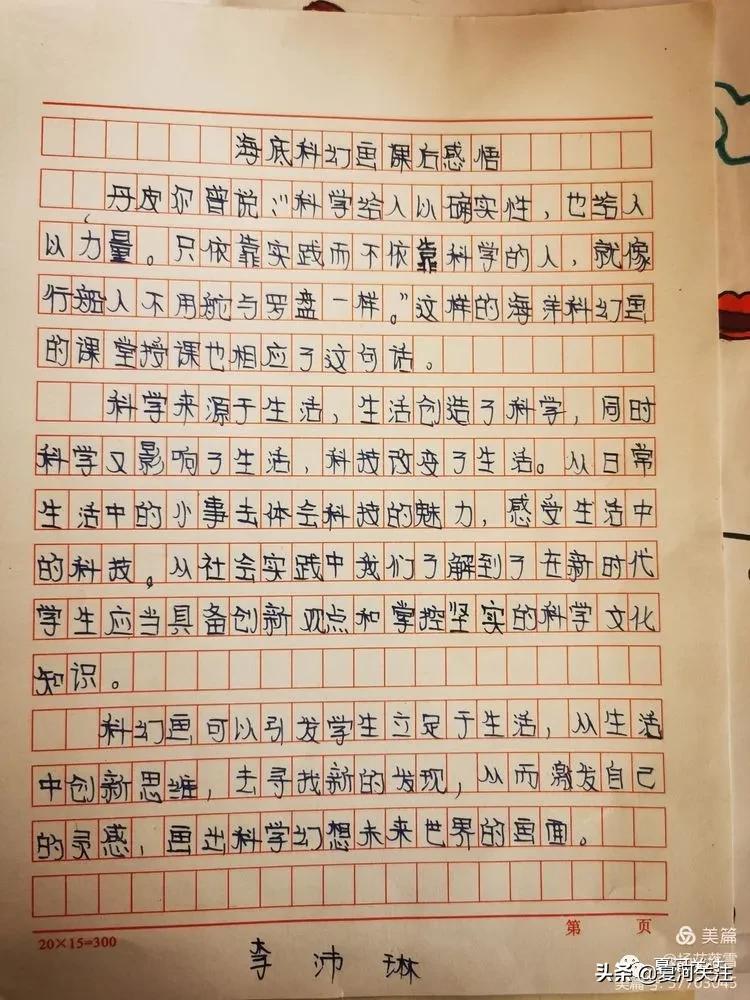 海底科幻画课后感悟
丹皮尔曾说:“科学给人以确实性，也给人
以力量。只依靠实践而不依靠科学的人，就像
行船人不用舵与罗盘一样。”这样的海洋科幻画
的课堂授课也相应了这句话。
科学来源于生活，生活创造了科学，同时
科学又影响了生活，科技改变了生活。从日常
生活中的小事去体会科技的魅力，感受生活中
的科技。从社会实践中我们了解到了在新时代
学生应当具备创新观点和掌控坚实的科学文化
知识。
科幻画可以引发学生立足于生活，从生活
中创新思维，去寻找新的发现，从而激发自己
的灵感，画出科学幻想未来世界的画面。
20×15=300
第 页
李沛琳
美篇
头条@夏河关注